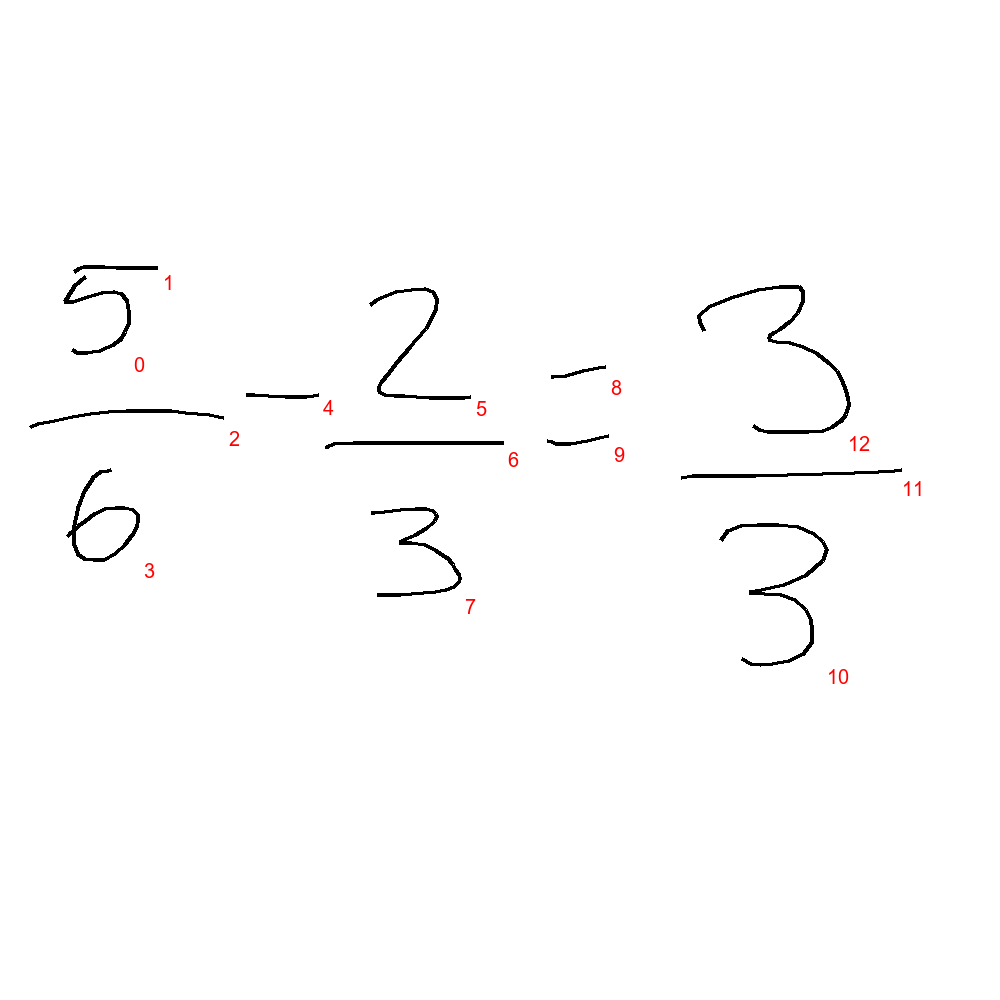 5/6 - 2/3 = 3/3
0 1 2 3 4 5 6 7 8 9 10 11 12